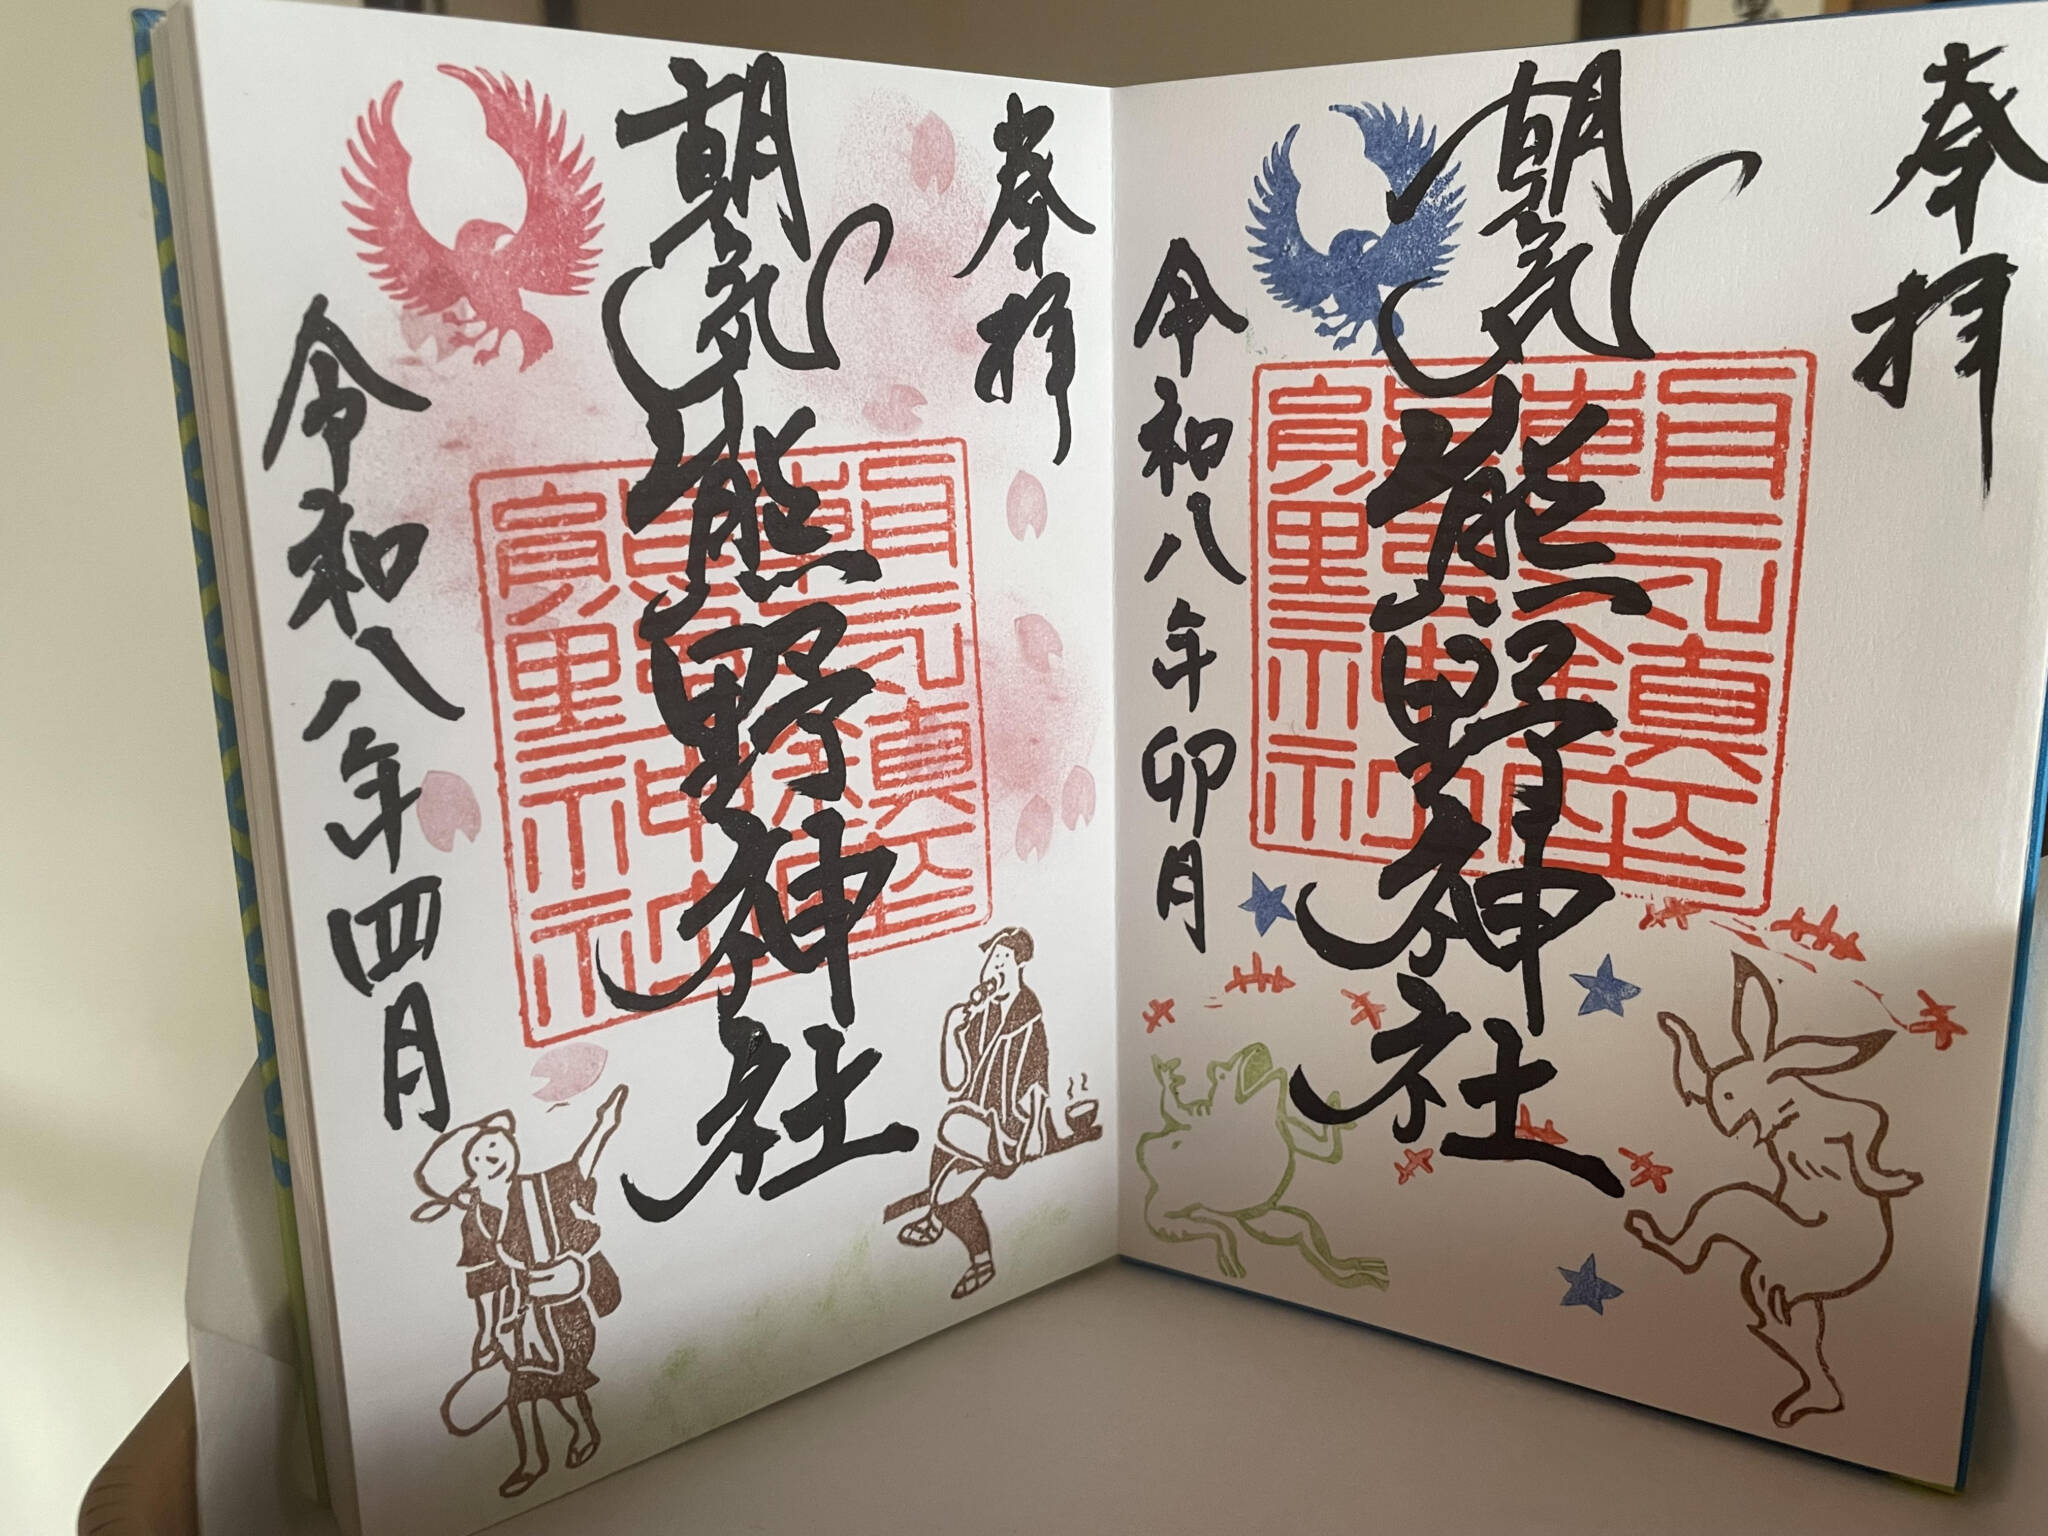 奉拝
朝気熊野神社
令和八年卯月
奉拝
朝気熊野神社
令和八年四月